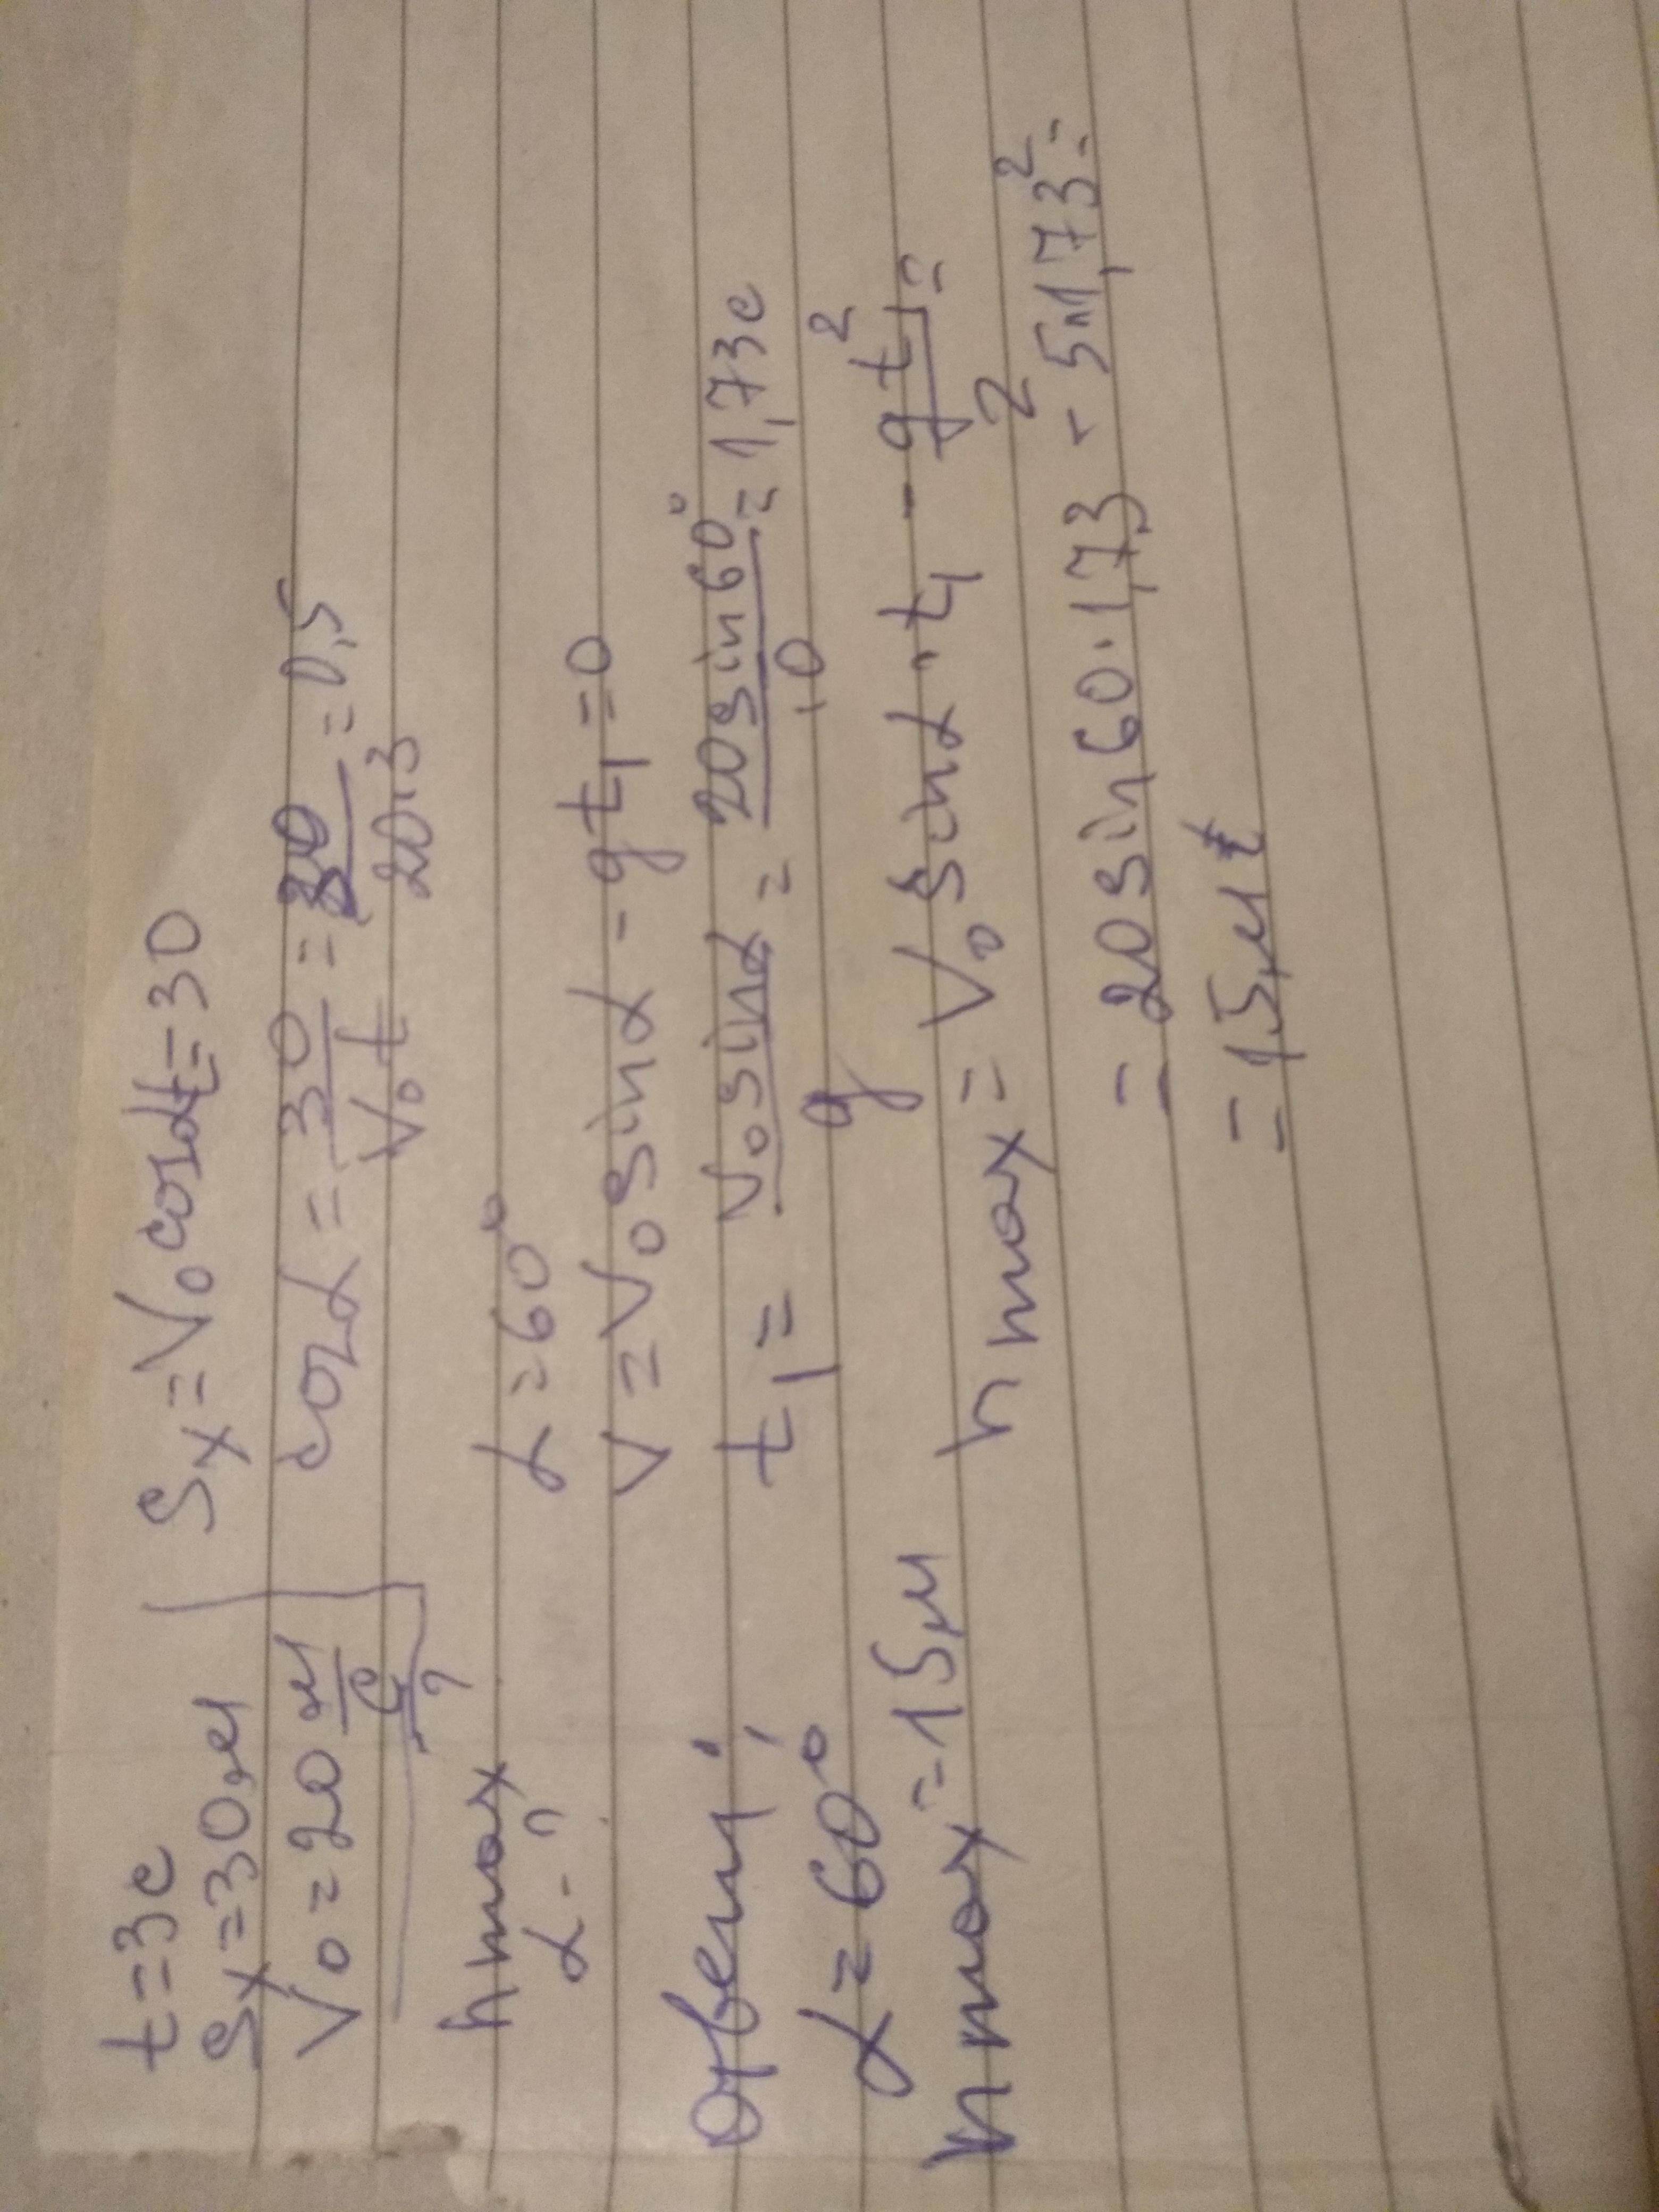 t=3c
Sx=30м
V₀=20 м/c
hmax ?
α-?
Sx=V₀cosαt=30
cosα=30/V₀t=30/20·3=0,5
α=60°
V=V₀sinα-gt₁=0
t₁=V₀sinα/g=20sin60°/10=1,73c
hmax=V₀sinα·t₁-gt₁²/2=
=20sin60·1,73-5·1,73²=
=15м
Ответ:
α=60°
hmax=15м